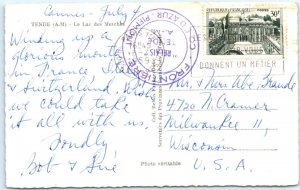 Cannes - July 4
TENDE (A.M) - Le Lac des Merveilles
Winding up a
glorious month
in France, Italy
and Switzerland. Wish
we could take
it all with us.
Fondly
Bob & Sué
RÉPUBLIQUE FRANÇAISE
30F
FRONTIÈRE
"RELAIS"
TENDE
A.M.
CÔTE D'AZUR PIÉMONT
DONNENT UN MÉTIER
Mr. & Mrs. Abe
4720 N. Cramer
Milwaukee 11,
Wisconsin
U. S. A.
Photo véritable